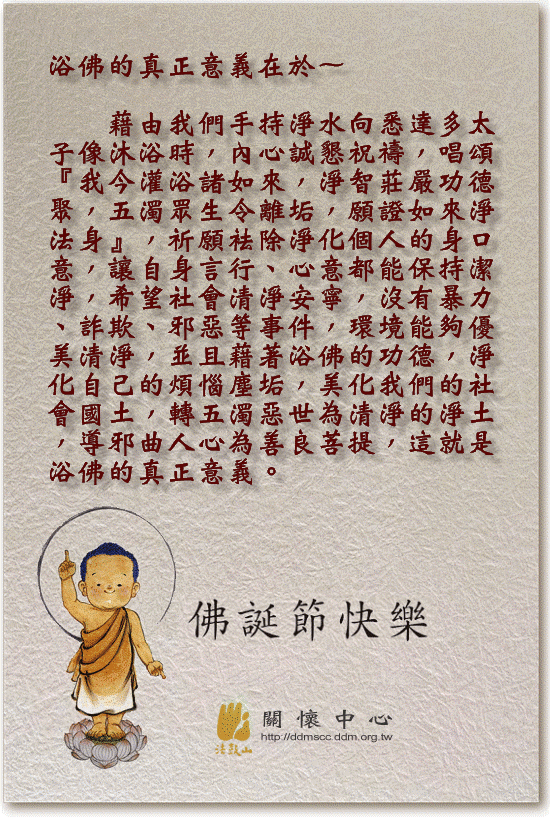 浴佛的真正意義在於～
藉由我們手持淨水向悉達多太
子像沐浴時，內心誠懇祝禱，唱頌
『我今灌浴諸如來，淨智莊嚴功德
聚，五濁眾生令離垢，願證如來淨
法身』，祈願祛除淨化個人的身口
意，讓自身言行、心意都能保持潔
淨，希望社會清淨安寧，沒有暴力
、詐欺、邪惡等事件，環境能夠優
美清淨，並且藉著浴佛的功德，淨
化自己的煩惱塵垢，美化我們的社
會國土，轉五濁惡世為清淨的淨土
，導邪曲人心為善良菩提，這就是
浴佛的真正意義。
佛誕節快樂
法鼓山
關懷中心
http://ddmscc.ddm.org.tw